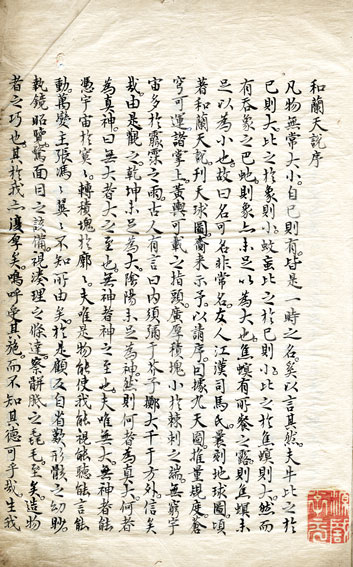 和蘭天說序
凡物無常大小自己則有皆是一時之名矣以言其然夫牛比之於
己則大比之於象則小蚊䖟比之於己則小比之於焦螟則大然而
有吞象之巴地則象亦未足以為大也焦螟有所餐之露則焦螟未
足以為小也故曰名可名非常名友人江漢司馬氏曩刻地球圖頃
著和蘭天說刊天球圖齎来示予以請序曰據九天圖推量規度蒼
穹可運諸掌上黃輿可載之指頭廣厚積塊小於棘刺之端無窮宇
宙多於霢霂之雨古人有言曰內須彌于芥子擲大千于方外信矣
哉由是觀之乾坤未足為大陰陽未足為神然則何者為真大何者
為真神曰無大者大之至也無神者神之至也夫唯無大無神者能
憑宇宙於寞寞轉積塊於廓廓夫唯是物能使我能視能聽能言能
動萬熒主張馮馮翼翼不知所由矣於是顧反自省歎形骸之幻眇
執鏡昭鑒驚面目之該備視湊理之條達察鬅䰄之毫毛至矣造物
者之巧也其於我亦邊厚矣嗚呼受其施而不知其德可乎哉生我